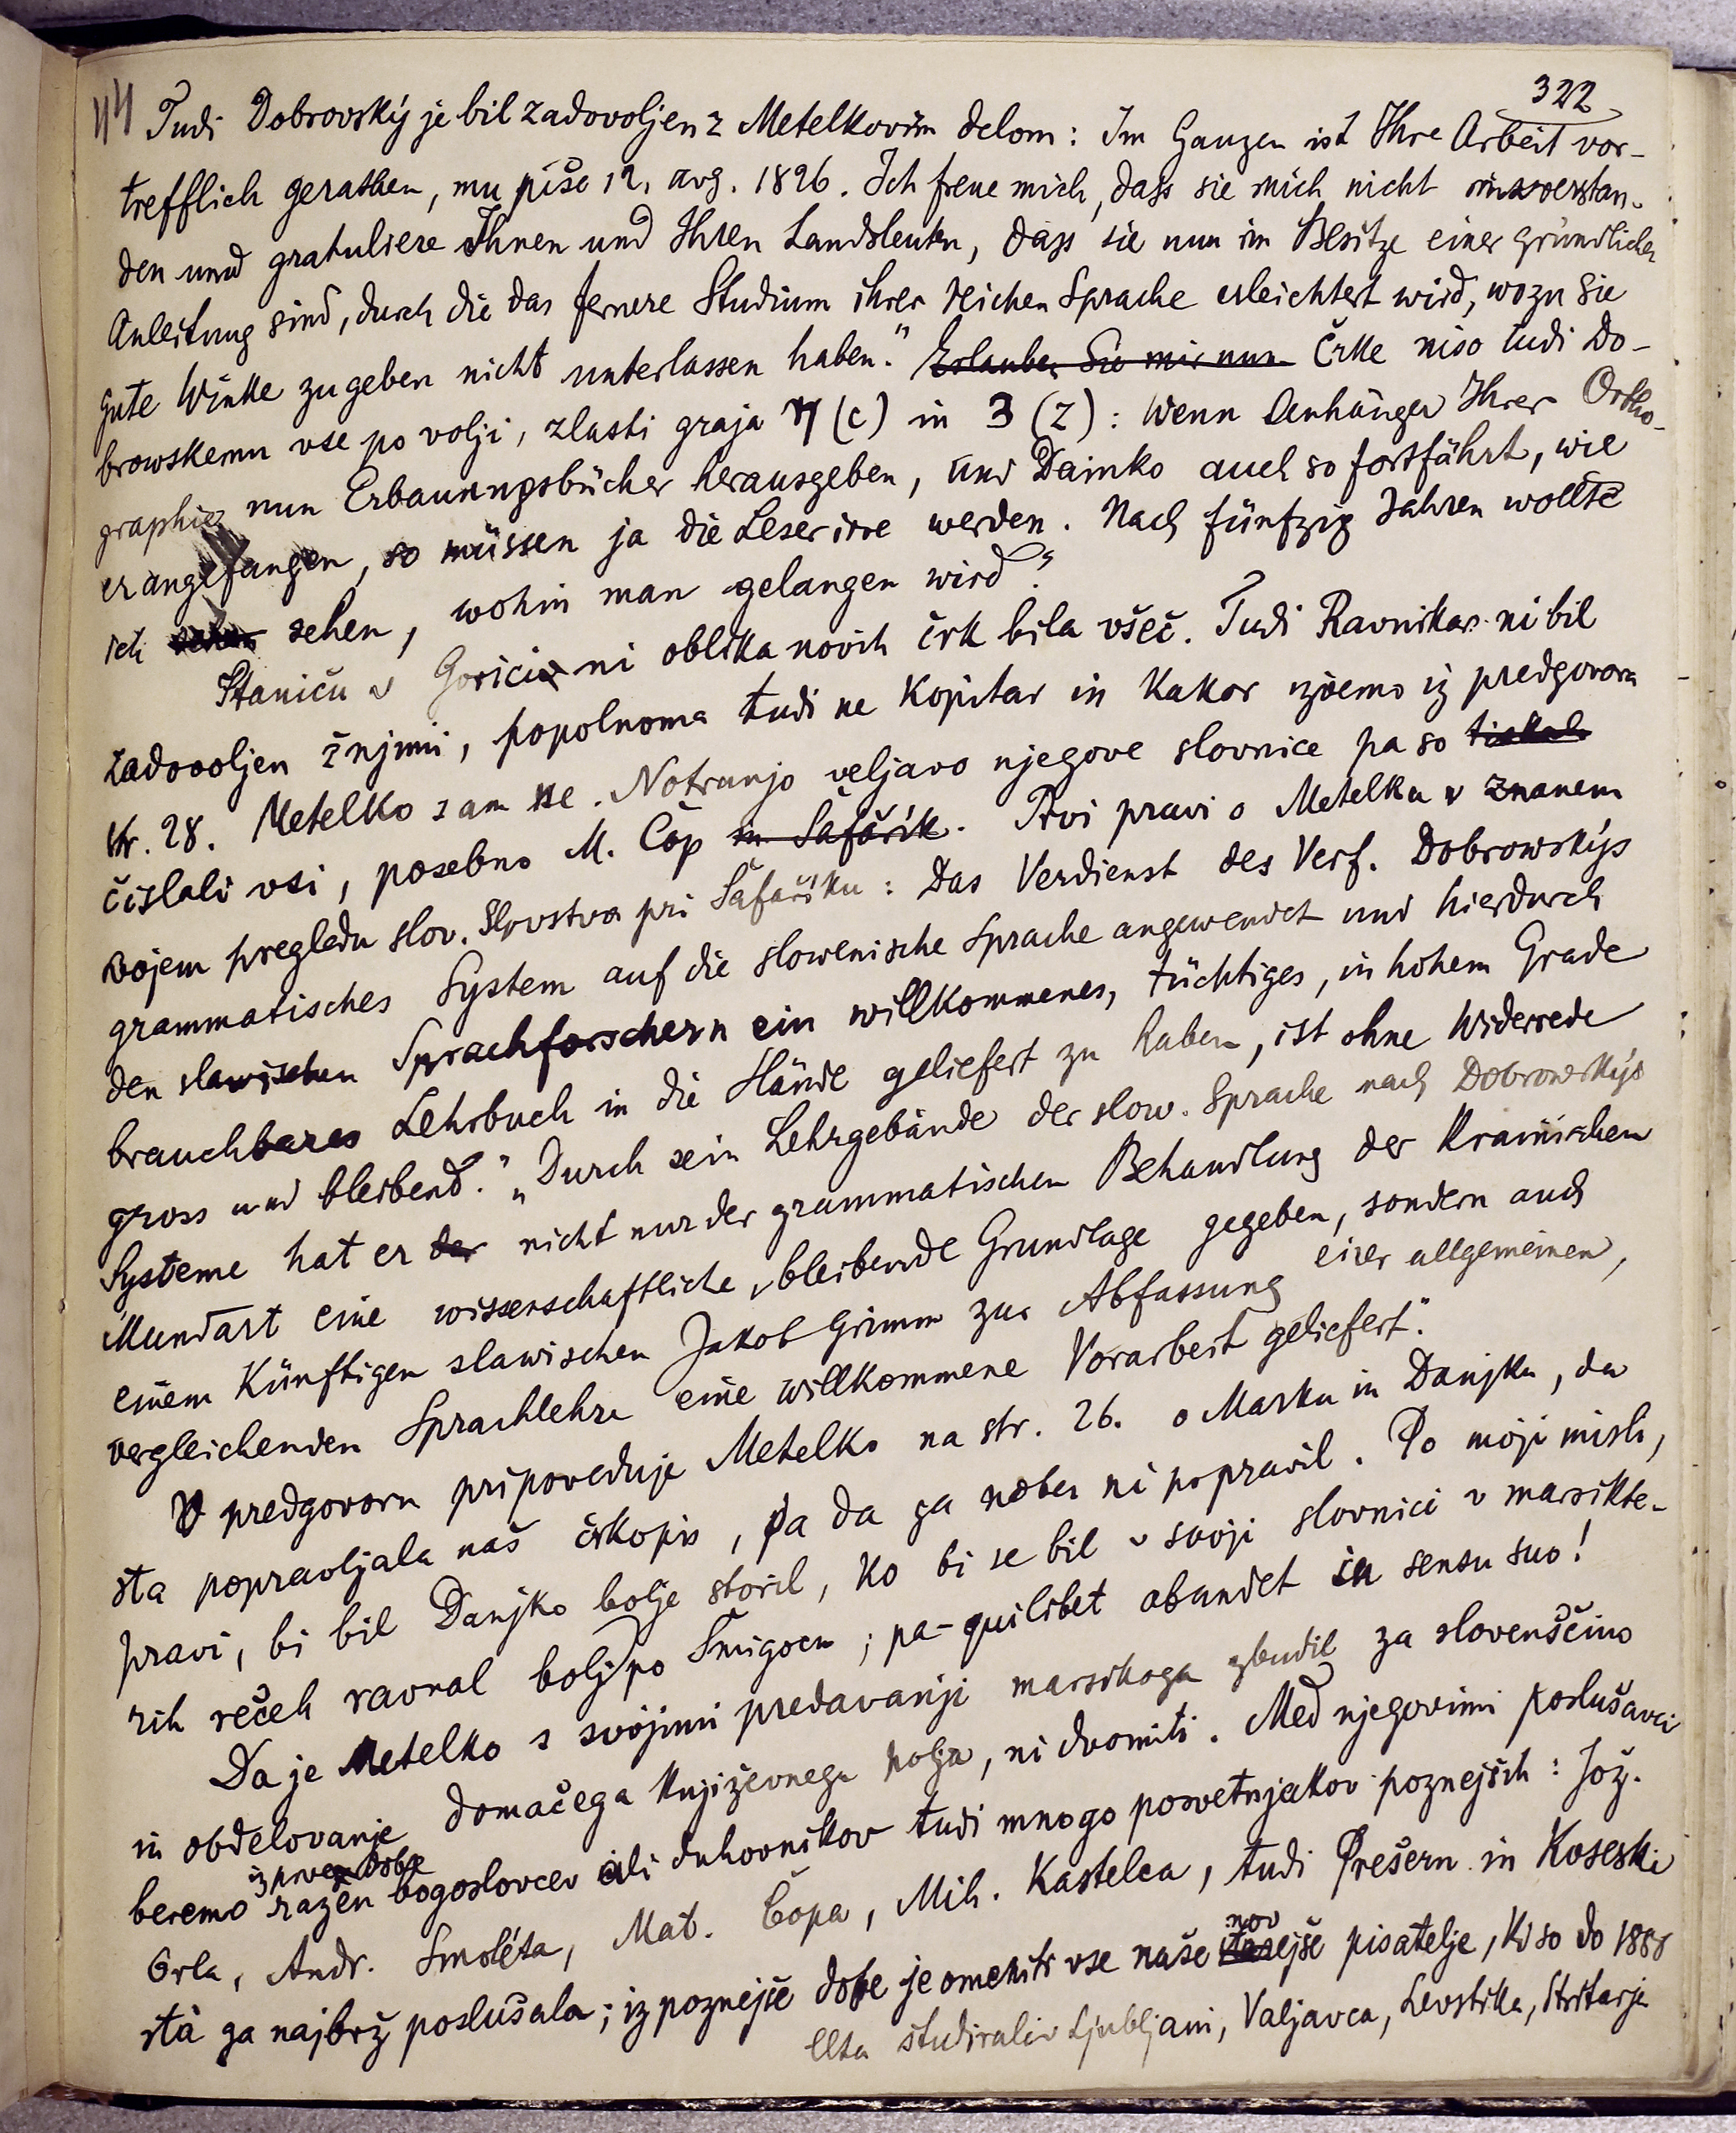 44
322
Tudi Dobrovský je bil zadovoljen z Metelkovim delom: Im Ganzen ist Ihre Arbeit vor-
trefflich gerathen, mu piše 12. avg. 1826. Ich freue mich, dass sie mich nicht missverstan-
den und gratuliere Ihnen und Ihren Landsleuten, dass sie nun im Besitze einer gründlichen
Anleitung sind, durch die das fernere Studium ihrer reichen Sprache erleichtert wird, wozu Sie
gute Winke zu geben nicht unterlassen haben." Erlauben Sie mir nun Črke niso tudi Do-
browskemu vse po volji, zlasti graja (c) in 3 (z): Wenn Anhänger Ihrer Ortho-
graphie nun Erbauungsbücher herausgeben, und Dainko auch so fortfährt, wie
er angefangen, so müssen ja die Leser irre werden. Nach fünfzig Jahren wollte
ich sehen, wohin man gelangen wird."
Staniču v Gorici ni oblika novih črk bila všeč. Tudi Ravnikar ni bil
zadovoljen ž njimi, popolnoma tudi ne Kopitar in kakor izvemo iz predgovora
str. 28. Metelko sam ne. Notranjo veljavo njegove slovnice pa so
čislali vsi, posebno M. Čop in Šafařik. Prvi pravi o Metelku v znanem
svojem pregledu slov. slovstva pri Šafařiku: Das Verdienst des Verf. Dobrowskýs
grammatisches System auf die slowenische Sprache angewendet und hierdurch
den slawischen Sprachforschern ein willkommenes, tüchtiges, in hohem Grade
brauchbares Lehrbuch in die Hände geliefert zu haben, ist ohne Widerrede
gross und bleibend." „Durch sein Lehrgebäude der slow. Sprache nach Dobrowskýs
Systeme hat er der nicht nur der grammatischen Behandlung der Krainischen
Mundart eine wissenschaftliche, bleibende Grundlage gegeben, sondern auch
einem künftigen slawischen Jakob Grimm zur Abfassung einer allgemeinen,
vergleichenden Sprachlehre eine willkommene Vorarbeit geliefert."
V predgovoru pripoveduje Metelko na str. 26. o Marku in Danjku, da
sta popravljala naš črkopis, pa da ga noben ni popravil. Po moji misli,
pravi, bi bil Danjko bolje storil, ko bi se bil v svoji slovnici v marsikte-
rih rečeh ravnal bolj po Šmigocu; pa - quilibet abundet in sensu suo!
Da je Metelko s svojimi predavanji marsikoga zbudil za slovenščino
in obdelovanje domačega književnega polja, ni dvomiti. Med njegovimi poslušavci
iz prve dobe
beremo razen bogoslovcev ali duhovnikov tudi mnogo posvetnjakov poznejših: Jož.
Orla, Andr. Smoléta, Mat. Čopa, Mih. Kastelca, tudi Prešern in Koseski
nov
sta ga najbrž poslušala; iz poznejše dobe je omeniti vse naše starejše pisatelje, ki so do 1858
študirali v Ljubljani, Valjavca, Levstika, Stritarja